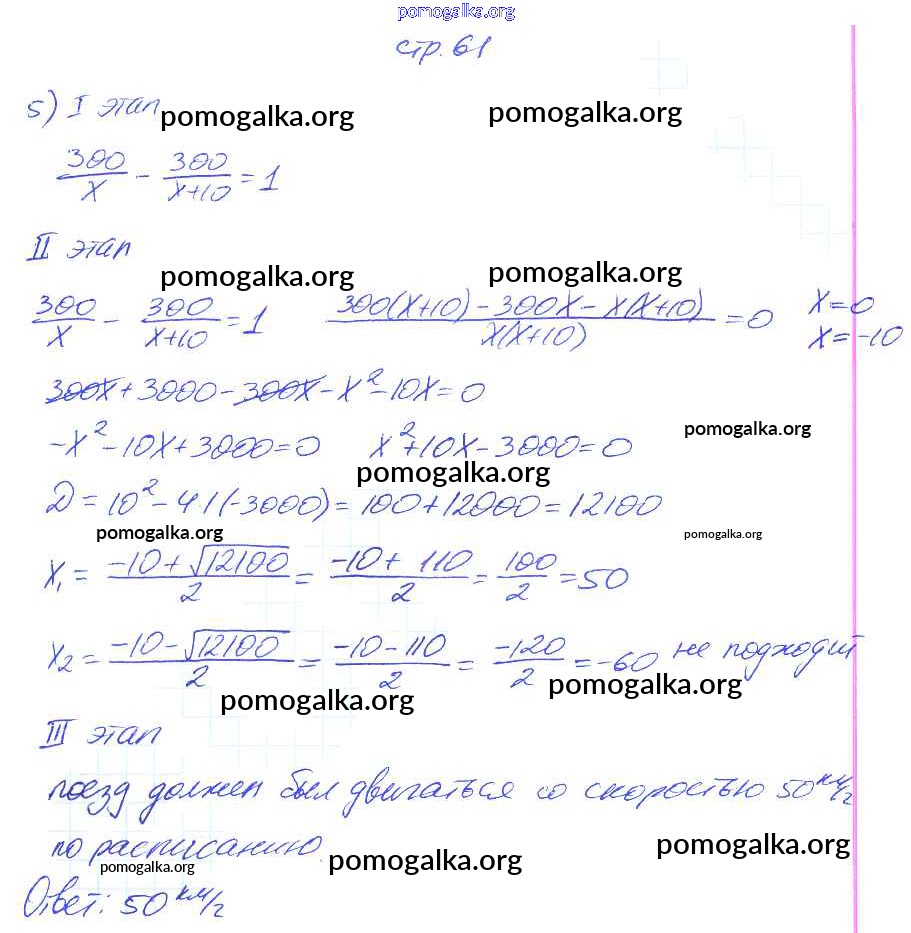 pomogalka.org
стр. 61
5) I этап
pomogalka.org pomogalka.org
300/x - 300/(x+10) = 1
II этап
pomogalka.org pomogalka.org
300/x - 300/(x+10) = 1 (300(x+10) - 300x - x(x+10))/(x(x+10)) = 0 x=0
x=-10
300x + 3000 - 300x - x² - 10x = 0
-x² - 10x + 3000 = 0 x² + 10x - 3000 = 0
pomogalka.org
pomogalka.org
D = 10² - 41(-3000) = 100 + 12000 = 12100
pomogalka.org pomogalka.org
x₁ = (-10 + √12100)/2 = (-10 + 110)/2 = 100/2 = 50
x₂ = (-10 - √12100)/2 = (-10 - 110)/2 = -120/2 = -60 не подходит
pomogalka.org pomogalka.org
III этап
поезд должен был двигаться со скоростью 50 км/г
по расписанию
pomogalka.org pomogalka.org pomogalka.org
Ответ: 50 км/г